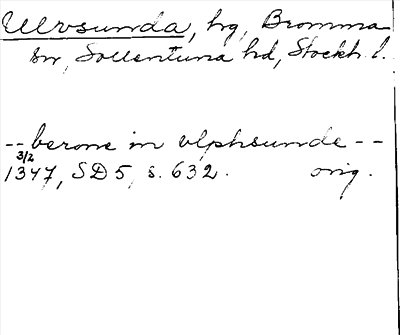 Ulvsunda, hg, Bromma
sn, Sollentuna hd, Stockh. l.
-- berone in vlphsunde --
3/2
1347, SD 5, s. 632. orig.